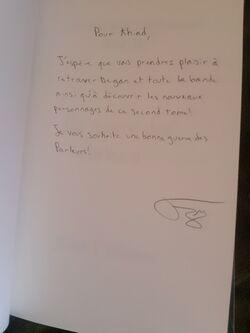 Pour Khiad,
J'espère que vous prendrez plaisir à
retrouver Degan et toute la bande
ainsi qu'à découvrir les nouveaux
personnages de ce second tome!
Je vous souhaite une bonne guerre des
Parleurs!